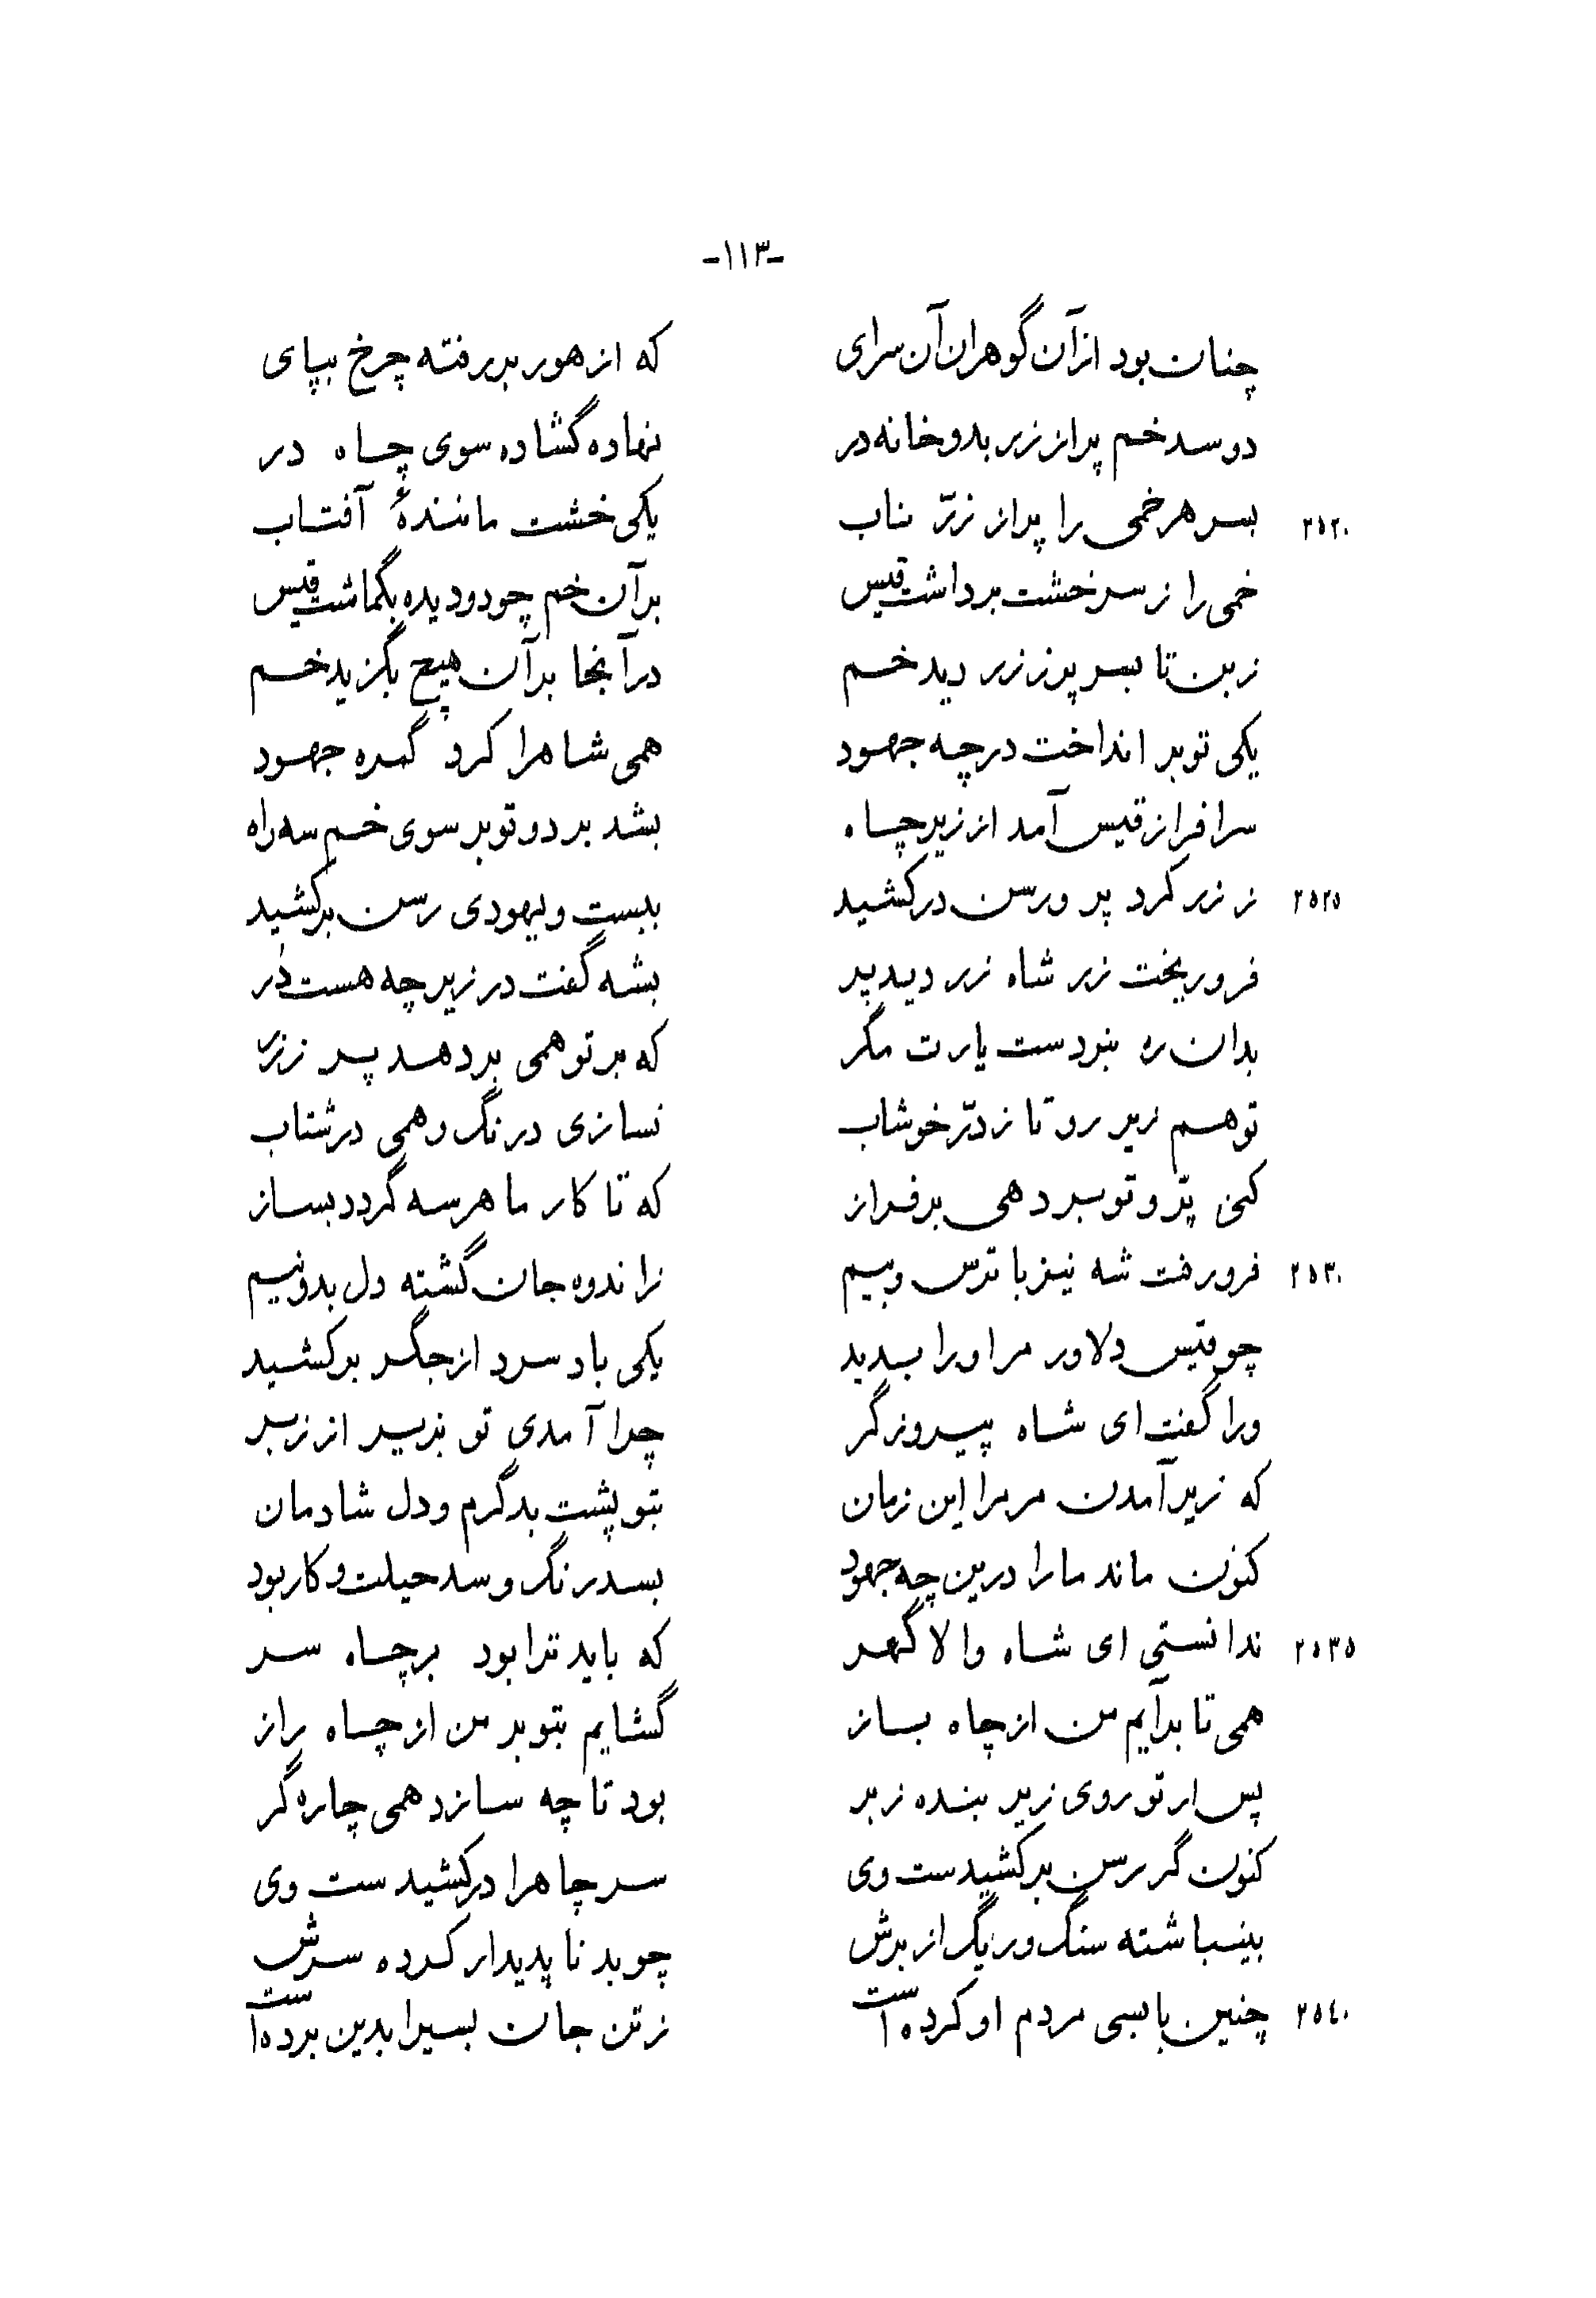 -۱۱۳-
چنان بود از آن گوهران آن سرای    که از هور بر رفته چرخ بپای
دو سد خم پر از زر بدو خانه در    نهاده گشاده سوی چاه در
۲۵۲۰    بسر هر خمی را پر از زرّ ناب    یکی خشت مانندهٔ آفتاب
خمی را ز سر خشت برداشت قیس    بر آن خم چو دو دیده بگماشت قیس
ز بن تا بسر پر ز زر دید خم    در آنجا بر آن هیچ بگزید خم
یکی توبر انداخت در چه جهود    همی شاه را کرد گمره جهود
سرافراز قیس آمد از زیر چاه    بشد برد و توبر سوی خم سه راه
۲۵۲۵    ز زر کرد پر و رسن در کشید    ببست و یهودی رسن بر کشید
فرو ریخت زر شاه زر دید پر    بشه گفت در زیر چه هست دُر
بدان ره نبودست یارت مگر    که بر تو همی بر دهد پر ز زر
تو هم زیر رو تا ز درّ خوشاب    نسازی درنگ و همی در شتاب
کنی پرّ و توبر دهی بر فراز    که تا کار ما هر سه گردد بساز
۲۵۳۰    فرو رفت شه نیز با ترس و بیم    ز اندوه جان گشته دل بدو نیم
چو قیس دلاور مر او را بدید    یکی باد سرد از جگر بر کشید
ورا گفت ای شاه پیروزگر    چرا آمدی تو بزیر از زبر
که زیر آمدن مر مرا این زمان    بتو پشت بد گرم و دل شادمان
کنون ماند ما را درین چه جهود    بسد رنگ و سد حیلت و کار بود
۲۵۳۵    ندانستی ای شاه والا گهر    که باید ترا بود بر چاه سر
همی تا بر آیم من از چاه بساز    گشایم بتو بر من از چاه راز
پس ار تو روی زیر بنده زبر    بود تا چه سازد همی چاره گر
کنون گر رسن بر کشیدست وی    سر چاه را در کشیدست وی
بینباشته سنگ و ریگ از برش    چو بد ناپدیدار کرده سرش
۲۵۴۰    چنین با بسی مردم او کرده است    ز تن جان بسیرا بدین برده است